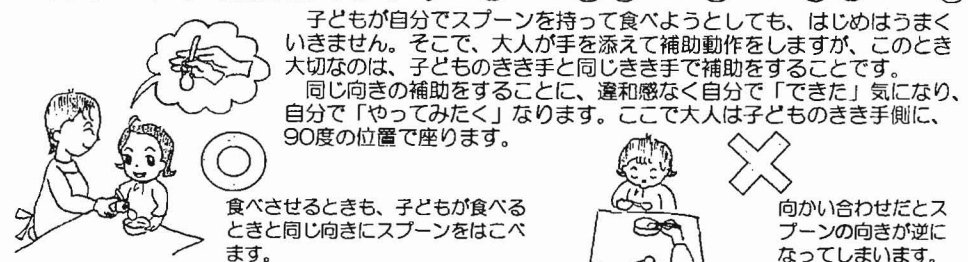 子どもが自分でスプーンを持って食べようとしても、はじめはうまく
いきません。そこで、大人が手を添えて補助動作をしますが、このとき
大切なのは、子どものきき手と同じきき手で補助をすることです。
同じ向きの補助をすることに、違和感なく自分で「できた」気になり、
自分で「やってみたく」なります。ここで大人は子どものきき手側に、
90度の位置で座ります。
食べさせるときも、子どもが食べる
ときと同じ向きにスプーンをはこべ
ます。
向かい合わせだとス
プーンの向きが逆に
なってしまいます。